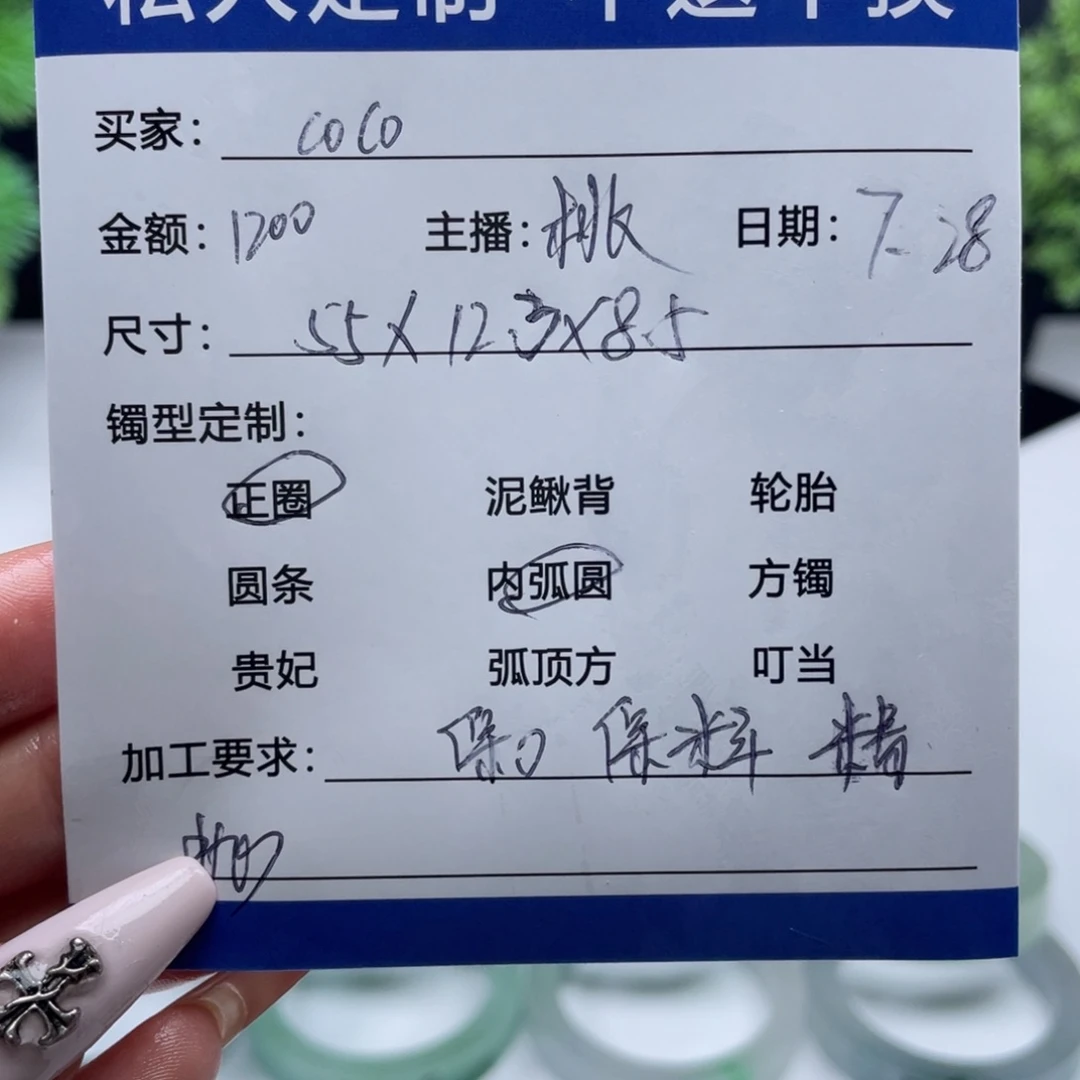 私人定制 不退不换
买家: COCO
金额: 1200 主播: 桃 日期: 7.28
尺寸: 55X12.5X8.5
镯型定制:
正圈 泥鳅背 轮胎
圆条 内弧圆 方镯
贵妃 弧顶方 叮当
加工要求: 保口 保料 精
抛